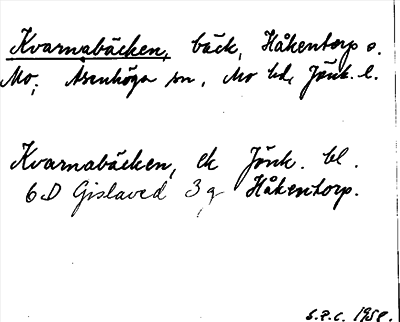 Kvarnabäcken, bäck, Håkentorp o.
Mo; Åsenhöga sn, Mo hd, Jönk. l.
Kvarnabäcken, ek Jönk. bl.
6D Gislaved 3g Håkentorp.
S.P.C. 1958.